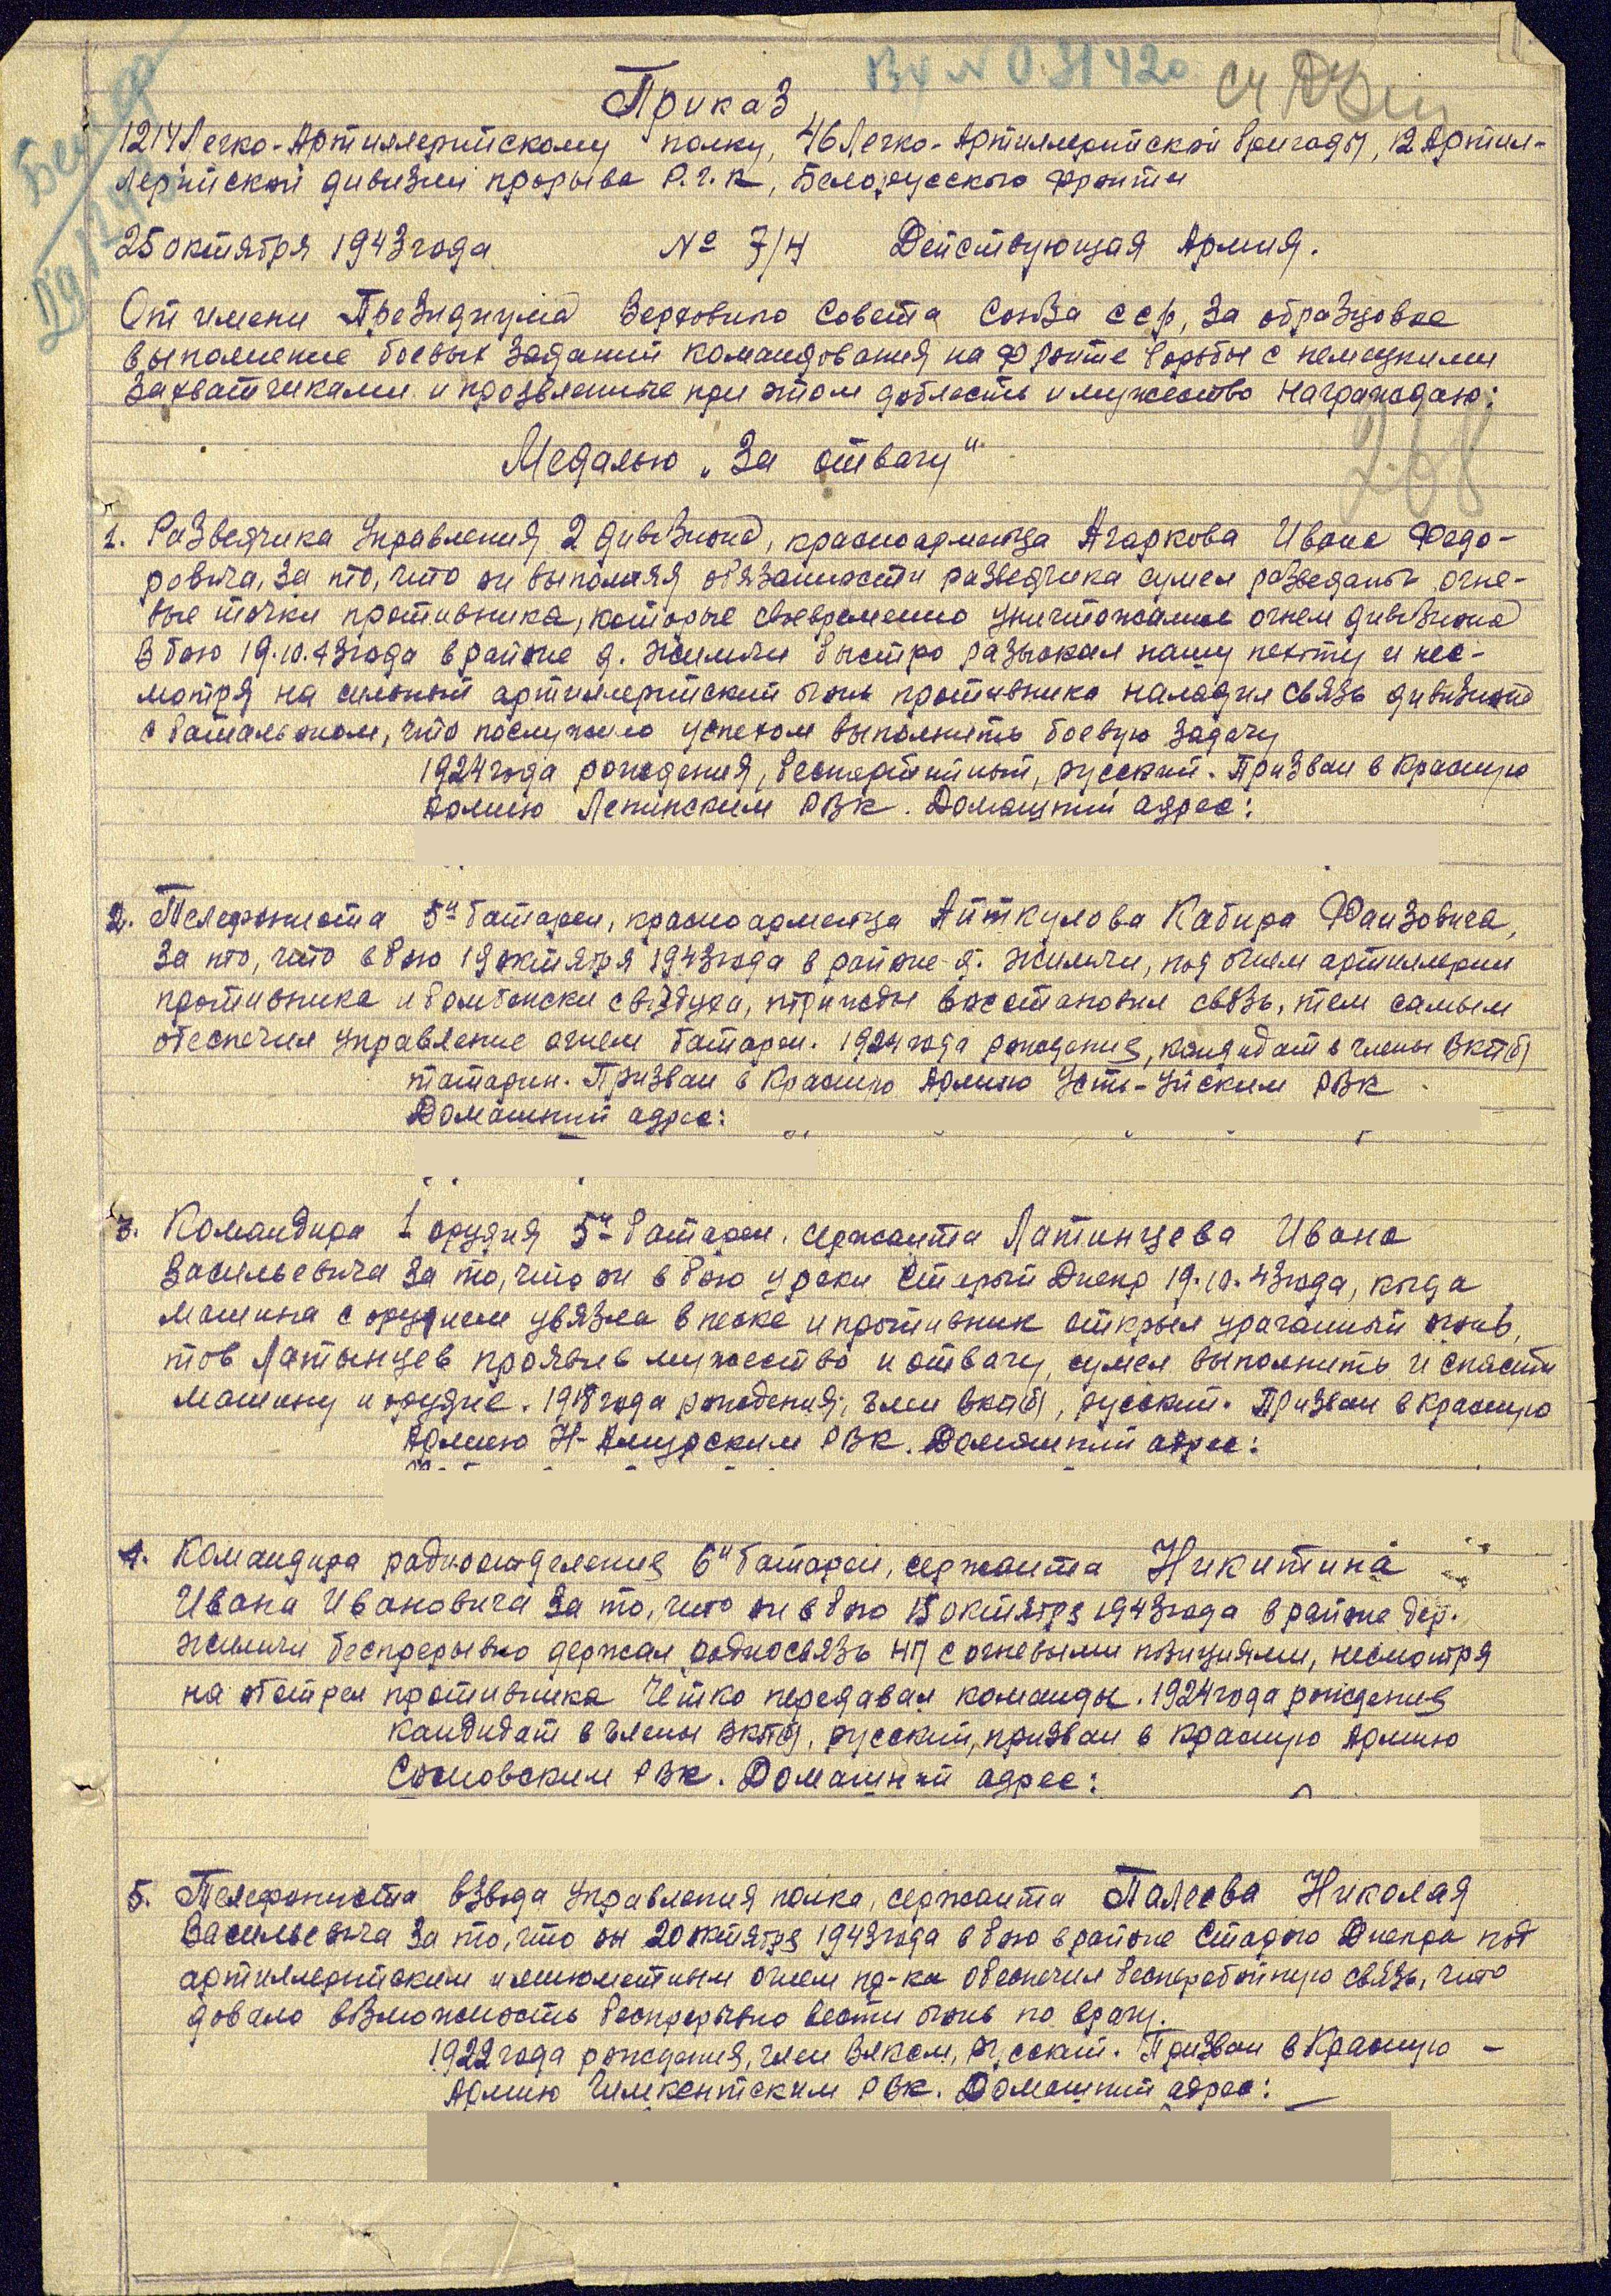 Вх № 031420
Приказ
1214 Легко-Артиллерийскому полку, 46 Легко-Артиллерийской бригады, 12 Артил-
лерийской дивизии прорыва Р.Г.К, Белорусского фронта
25 октября 1943 года № 7/Н Действующая Армия.
От имени Президиума Верховного Совета Союза ССР, за образцовое
выполнение боевых заданий командования на фронте борьбы с немецкими
захватчиками и проявленные при этом доблесть и мужество награждаю:
268
Медалью „За отвагу"
1. Разведчика Управления 2 дивизиона, красноармейца Агаркова Ивана Федо-
ровича, за то, что он выполняя обязанности разведчика сумел разведать огне-
вые точки противника, которые своевременно уничтожались огнем дивизиона
В бою 19.10.43 года в районе д. Жиличи быстро разыскал нашу пехоту и нес-
мотря на сильный артиллерийский огонь противника наладил связь дивизиона
с батальоном, что послужило успехом выполнить боевую задачу
1924 года рождения, беспартийный, русский. Призван в Красную
Армию Ленинским РВК. Домашний адрес:
2. Телефониста 5й батареи, красноармейца Айткулова Кабира Фаизовича,
за то, что в бою 19 октября 1943 года в районе д. Жиличи, под огнем артиллерии
противника и бомбежки с воздуха, трижды восстановил связь, тем самым
обеспечил управление огнем батареи. 1924 года рождения, кандидат в члены ВКП(б)
татарин. Призван в Красную Армию Усть-Уйским РВК
Домашний адрес:
3. Командира 1 орудия 5й батареи, сержанта Латынцева Ивана
Васильевича за то, что он в бою у реки Старый Днепр 19.10.43 года, когда
машина с орудием увязла в песке и противник открыл ураганный огонь,
тов Латынцев проявив мужество и отвагу, сумел выполнить и спасти
машину и орудие. 1918 года рождения, член ВКП(б), русский. Призван в Красную
Армию Н-Амурским РВК. Домашний адрес:
4. Командира радиоотделения 6й батареи, сержанта Никитина
Ивана Ивановича за то, что он в бою 15 октября 1943 года в районе дер.
Жиличи беспрерывно держал радиосвязь НП с огневыми позициями, несмотря
на обстрел противника чётко передавал команды. 1924 года рождения
кандидат в члены ВКП(б), русский, призван в Красную Армию
Сосновским РВК. Домашний адрес:
5. Телефониста взвода управления полка, сержанта Палеева Николая
Васильевича за то, что он 20 октября 1943 года в бою в районе Старого Днепра под
артиллерийским и минометным огнем пр-ка обеспечил бесперебойную связь, что
давало возможность беспрерывно вести огонь по врагу.
1922 года рождения, член ВЛКСМ, русский. Призван в Красную -
Армию Чимкентским РВК. Домашний адрес: